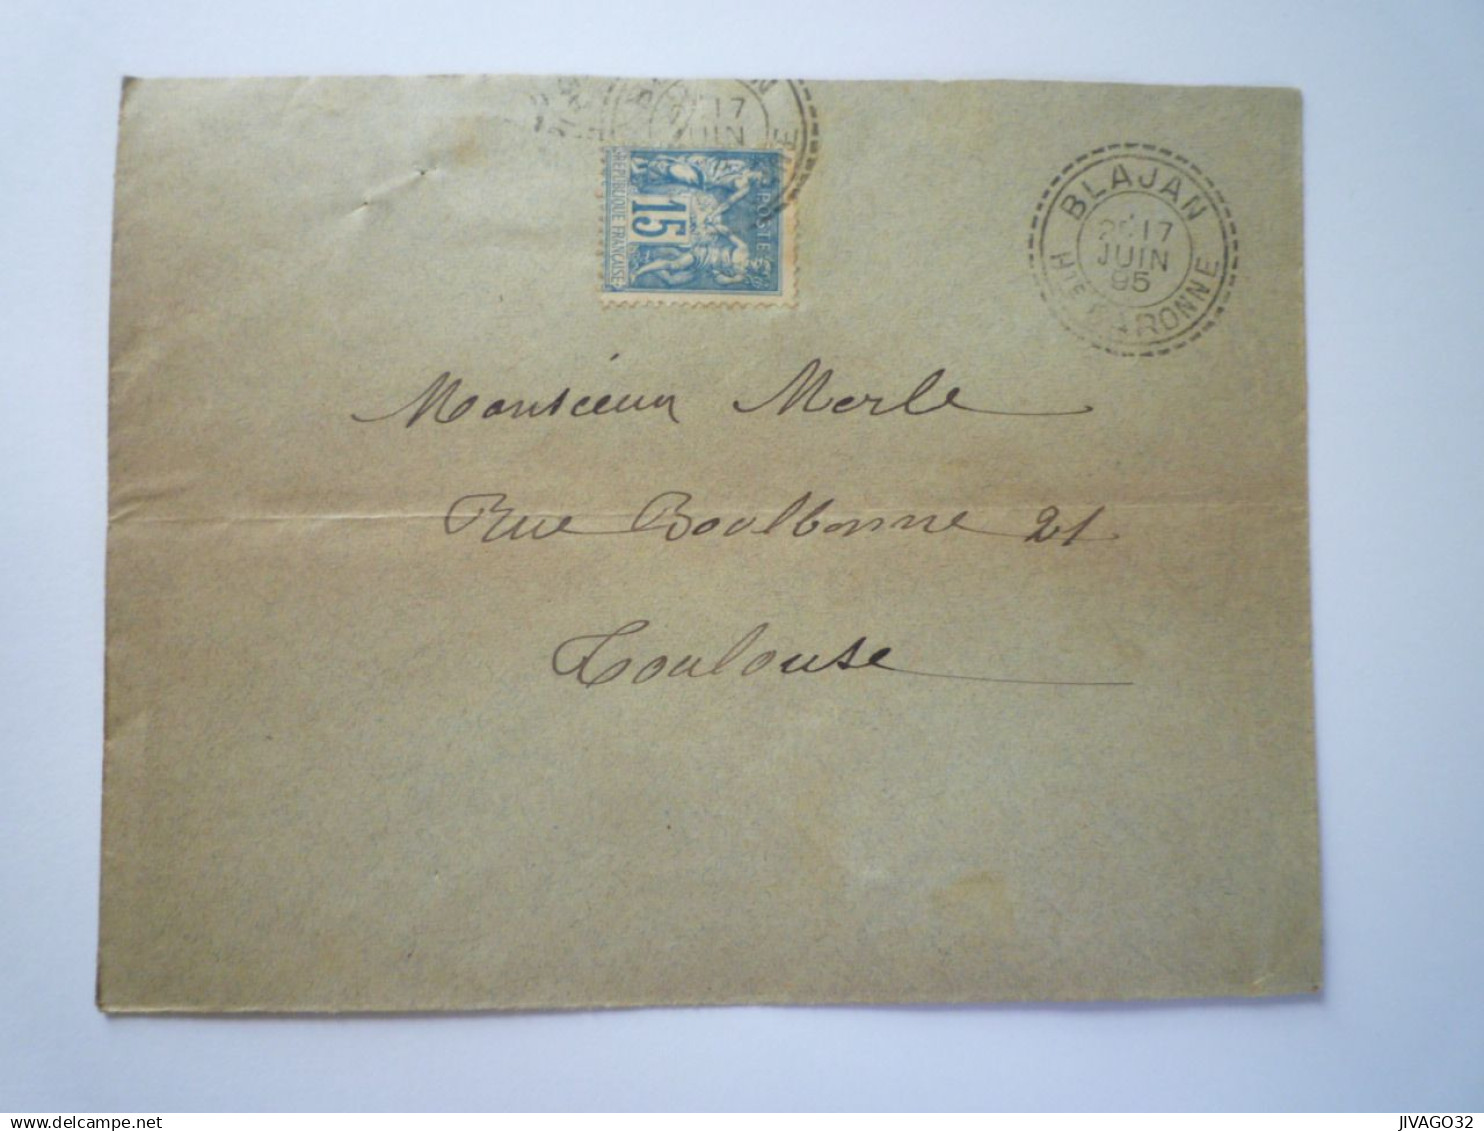 17
JUIN
BLAJAN
2E 17
JUIN
95
HTE GARONNE
POSTES
15
RÉPUBLIQUE FRANÇAISE
Monsieur Merle
Rue Boulbonne 21
Toulouse
delcampe.net
JIVAGO32